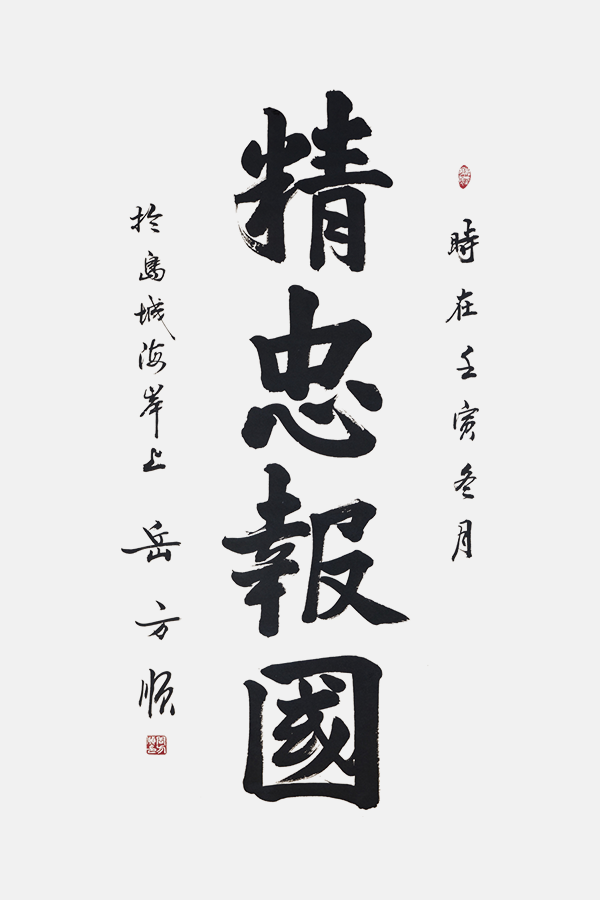 時在壬寅冬月
精忠報國
於島城海岸上 岳方順